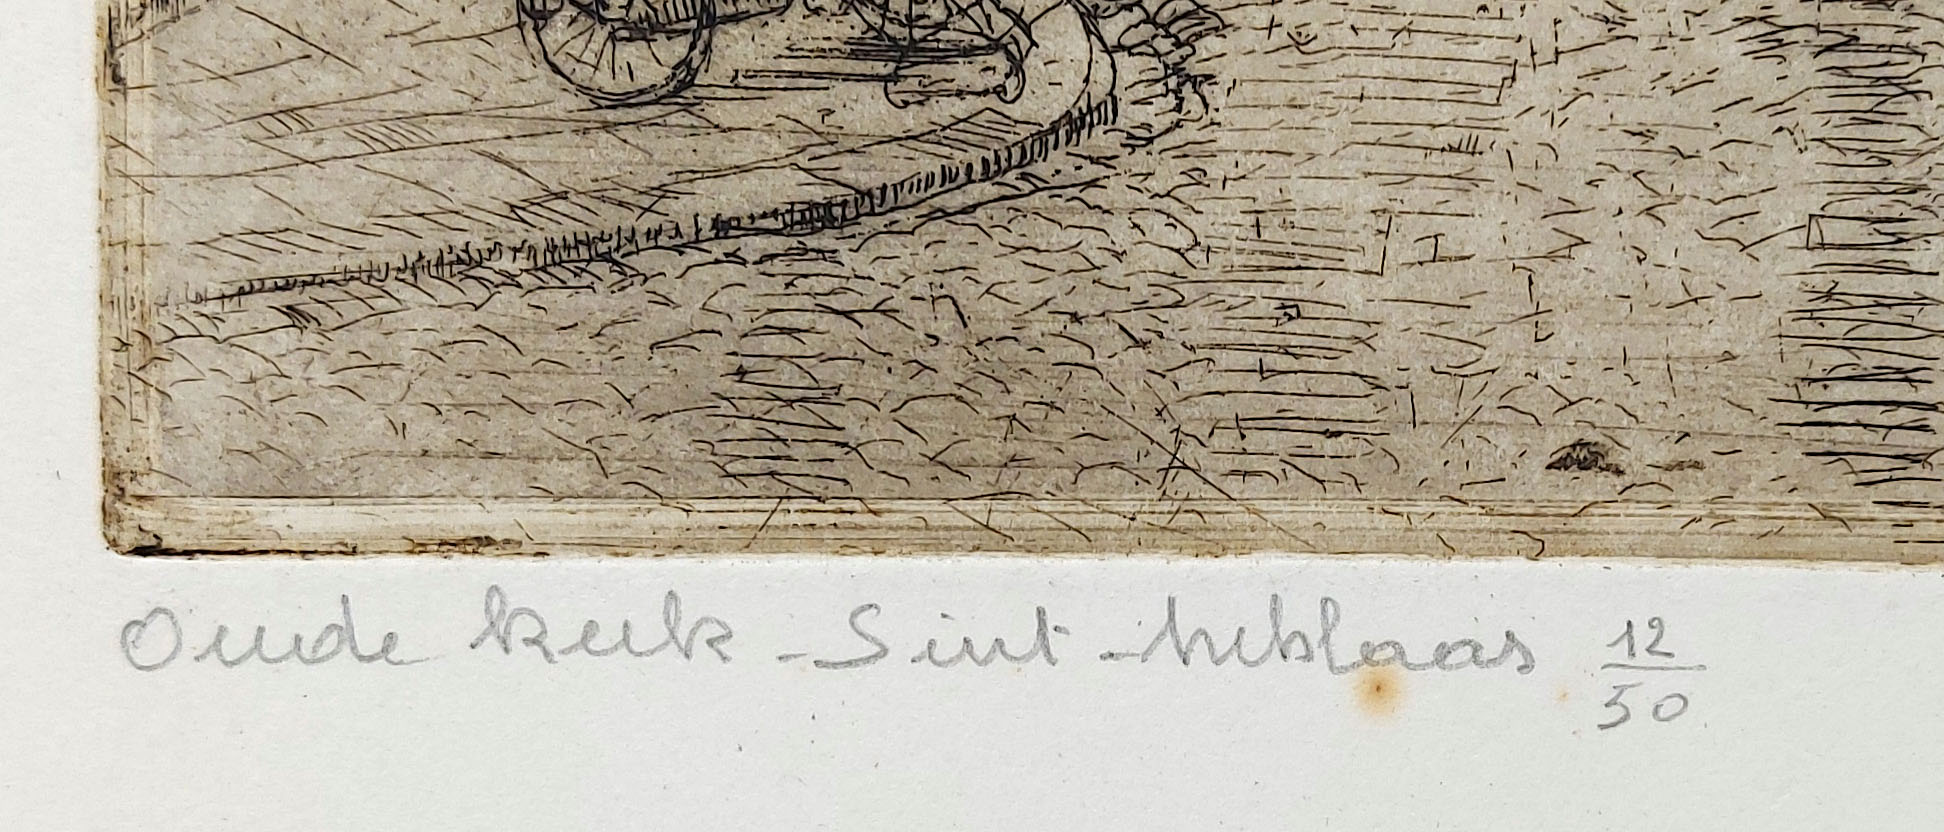 Oude kerk - Sint - Niklaas 12/50